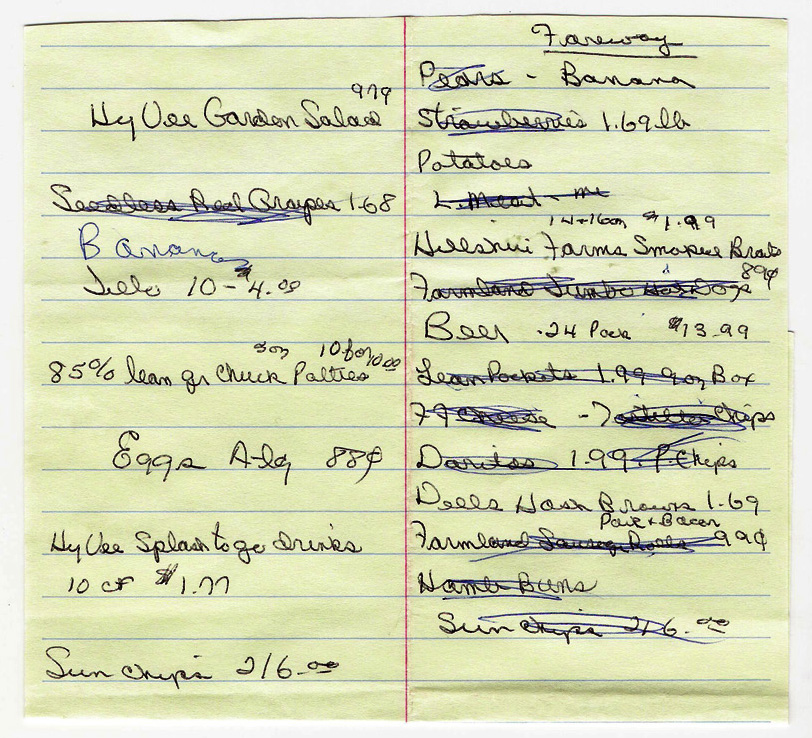 979
Hy Vee Garden Salad
Seedless Red Grapes 1.68
Banana
Jello 10 - $4.00
5 oz 10 for 10.00
85% lean gr Chuck Patties
Eggs A-lg 88¢
Hy Vee Splash to go drinks
10 ct $1.77
Sun chips 2/6.00
Fareway
Pears - Banana
Strawberries 1.69 lb
Potatoes
L. Meat -
14-16 oz $1.99
Hillshire Farms Smoked Brats
Farmland Jumbo Hot Dogs 89¢
Beer .24 Pack $13.99
Lean Pockets 1.99 9 oz Box
FF Cheese - Tortilla Chips
Doritos 1.99. P. Chips
Dells Hash Browns 1.69
Pork & Bacon
Farmland Sausage Rolls 99¢
Hamb Buns
Sun chips 2/6.00